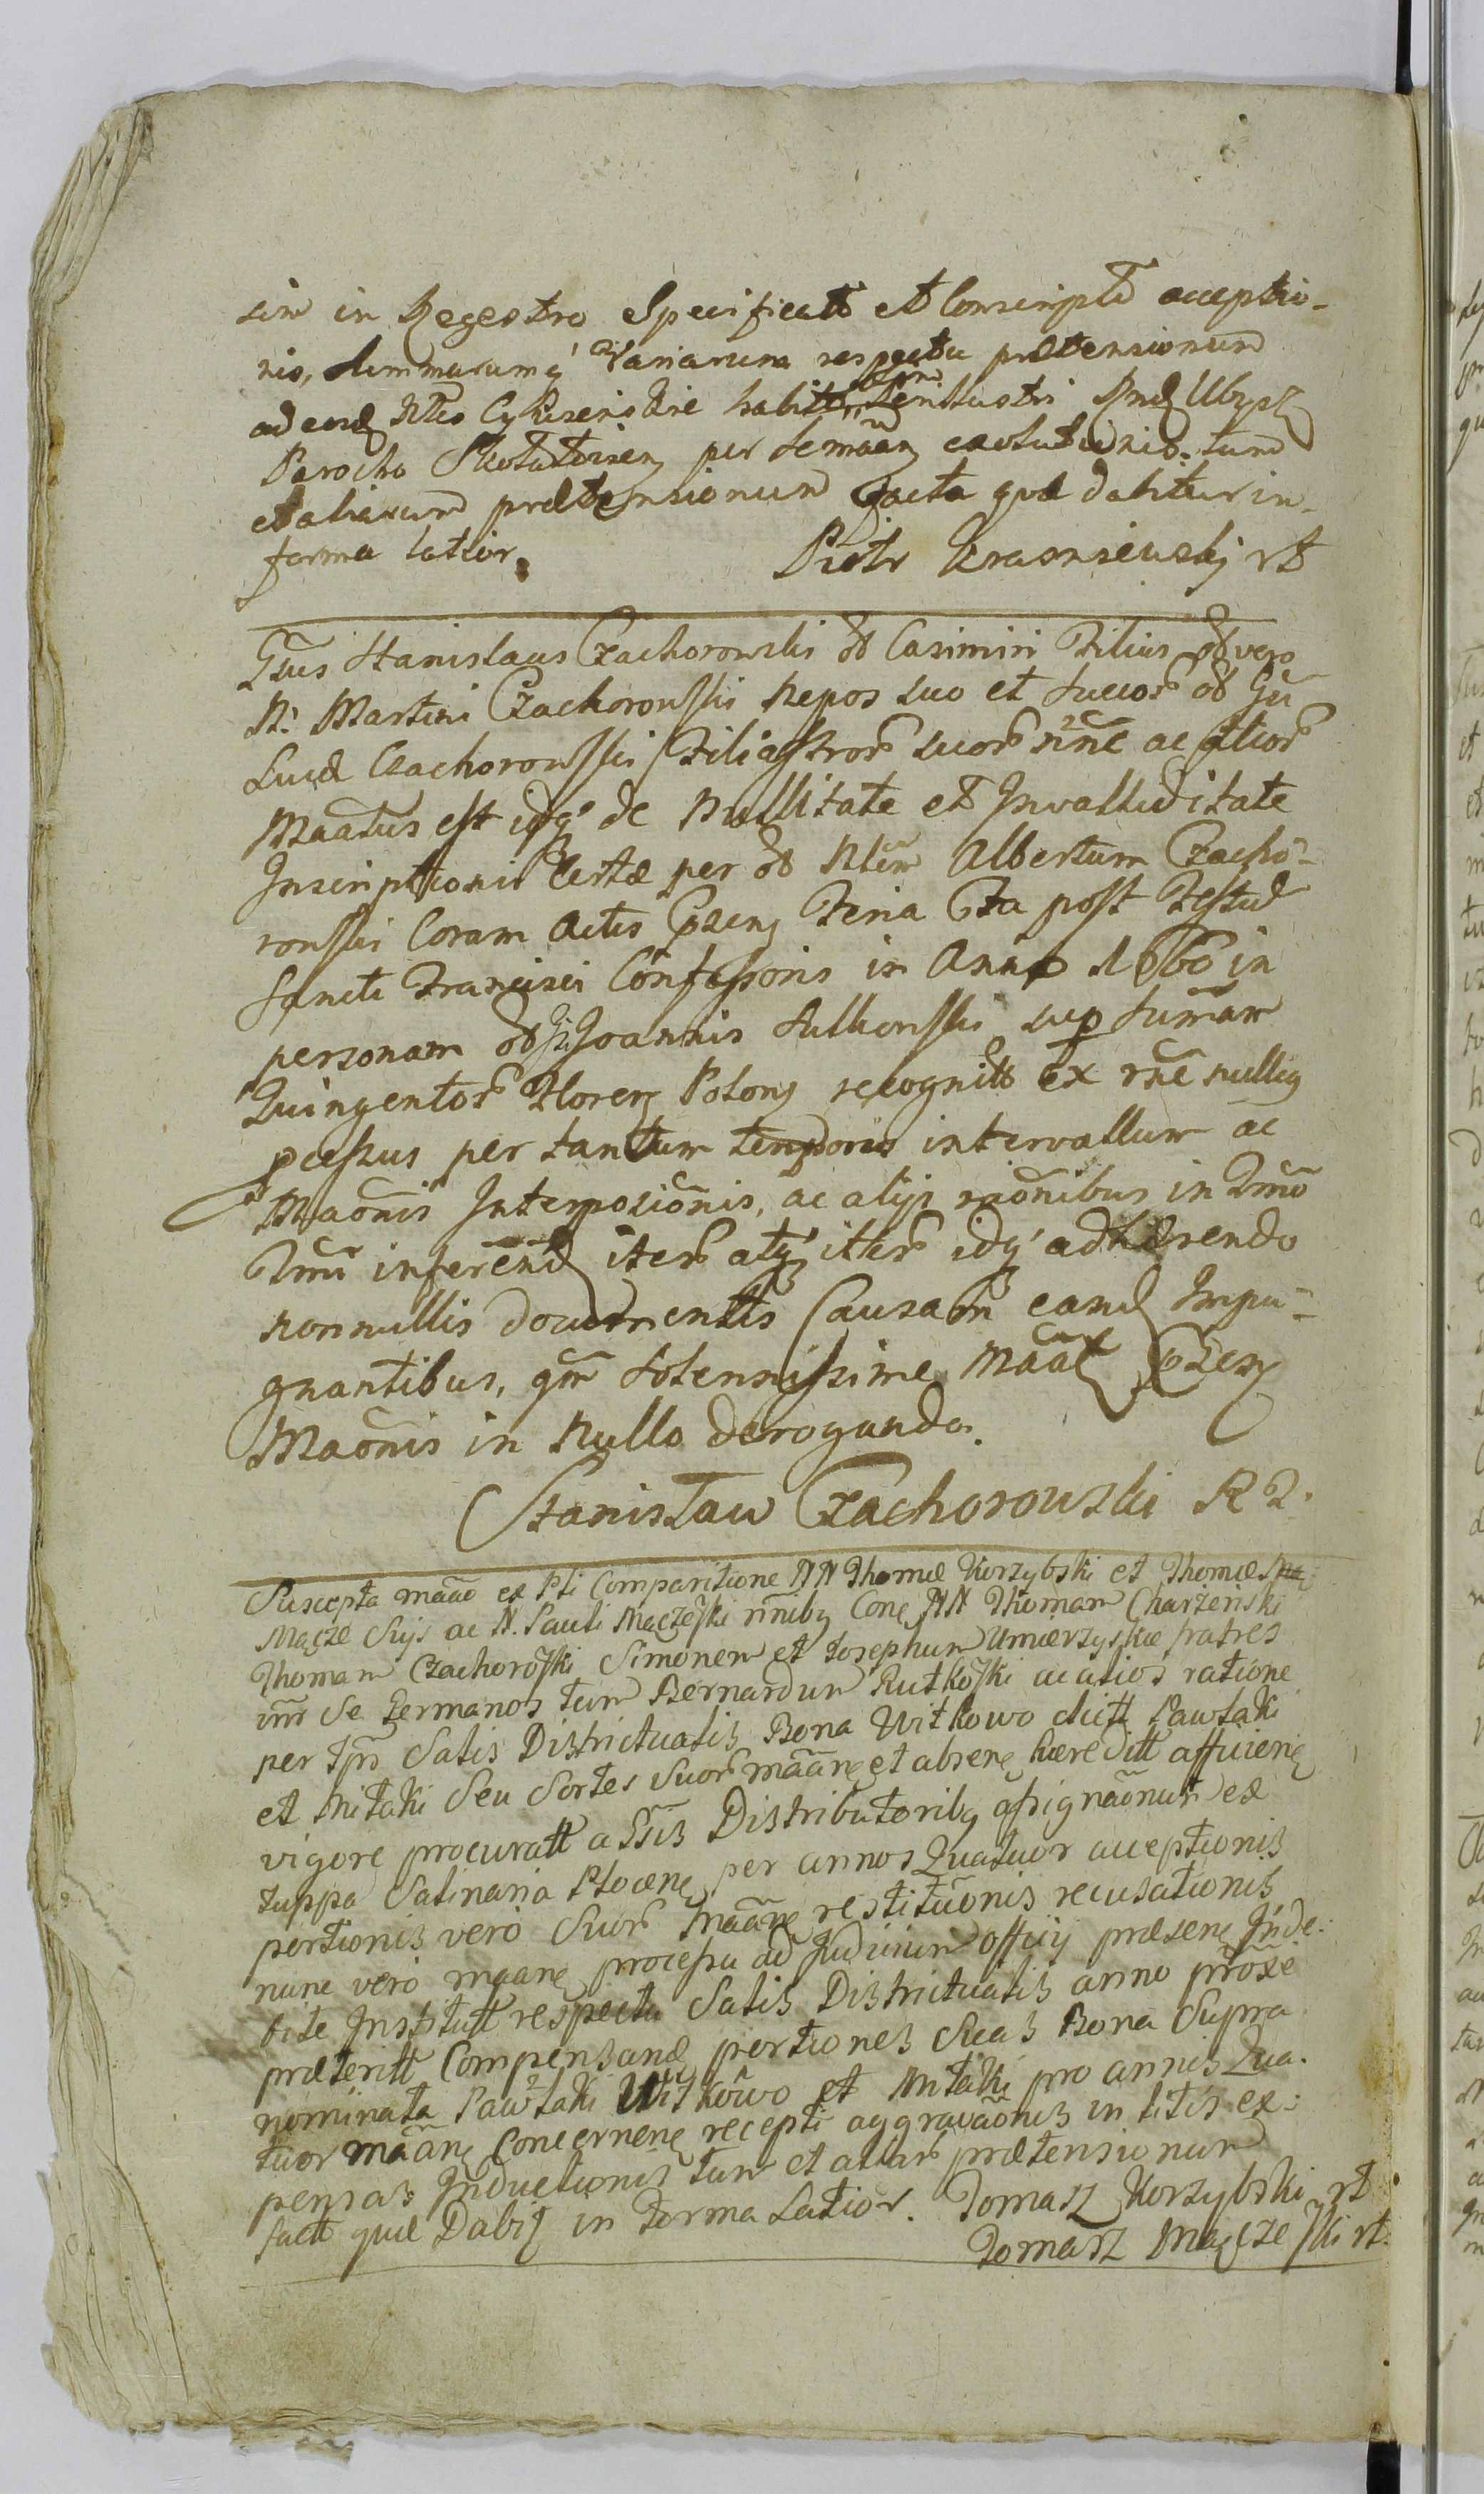 sim in Regestro Specificatt et Conscript acceptio-
nis, Summarumq' Variarum respectu prætensionum
ad eosd Nteo habito
Parocho per tum
et aliarum prætensionum facta quæ dabitur in
forma latior. Piotr Krasniewskj rt
Gsus Stanislaus Czachorowski ol Casimiri Filius ol vero
N: Martini Czachorowski Nepos suo et suoor ol Gsi
Lucæ Czachorowski Filiastror suor nne ac alior
Maatus est idq' de Nullitate et Invalliditate
Inscriptionis Certæ per ol Nlem Albertum Czacho-
rowski Coram Actis Feria 6ta post Festud
Sancti Francisci Confessoris in Anno 1660 in
personam ol Gsi Joannis sup Sumam
Quingentor Floren Polon recognitt Ex rne nulliq
pcessus per tantum temporis intervallum ac
Maõnis Interposiõnis, ac alijs raõnibus in Tmõ
Tmi inferend iter atq' iter idq' adhærendo
nonnullis documentis Causam eand Impu-
gnantibus, qm Solennissime Maat
Maõnis in Nullo derogando.
Stanisław Czachorowski R T.
Suscepta maãõ ex Pti Comparitione NN Thomæ Korzybski et Thomæ
Mącze Skijs ac N. Pauli Mączeski nnibq Conę NN Thomam Charzeński
Thomam Czachoroski Simonem et Josephum Umierzyskie fratres
inr Se Germanos tum Bernardum Rutkoski ac alios ratione
per Tpm Salis Districtualis Bona Witkowo dictt Pawłaki
et Mitaki Seu Sortes Suor maãnę et absenę hæreditt afficienę
vigore procuratt a SSis Distributoribq assignaõnum ex
tuppa Salinaria Plocenę per annos Quatuor acceptionis
portionis vero Suor Maãnę restituõnis recusationis
nunc vero maanę processu ad Judicium officij præsenę Inde-
bite Institutt respectu Salis Districtualis anno proxe
præteritt Compensandę portiones Suas Bona Supra
nominata Pawłaki Witkowo et Mitaki pro annis Qua-
tuor maãnę Concernenę recepti aggravaõnis in litis ex-
pensas Inductionis tum et aliar prætensionum
factt quæ Dabit in Forma Latior. Tomasz Korzybski rt
Tomasz Mączeski rt.